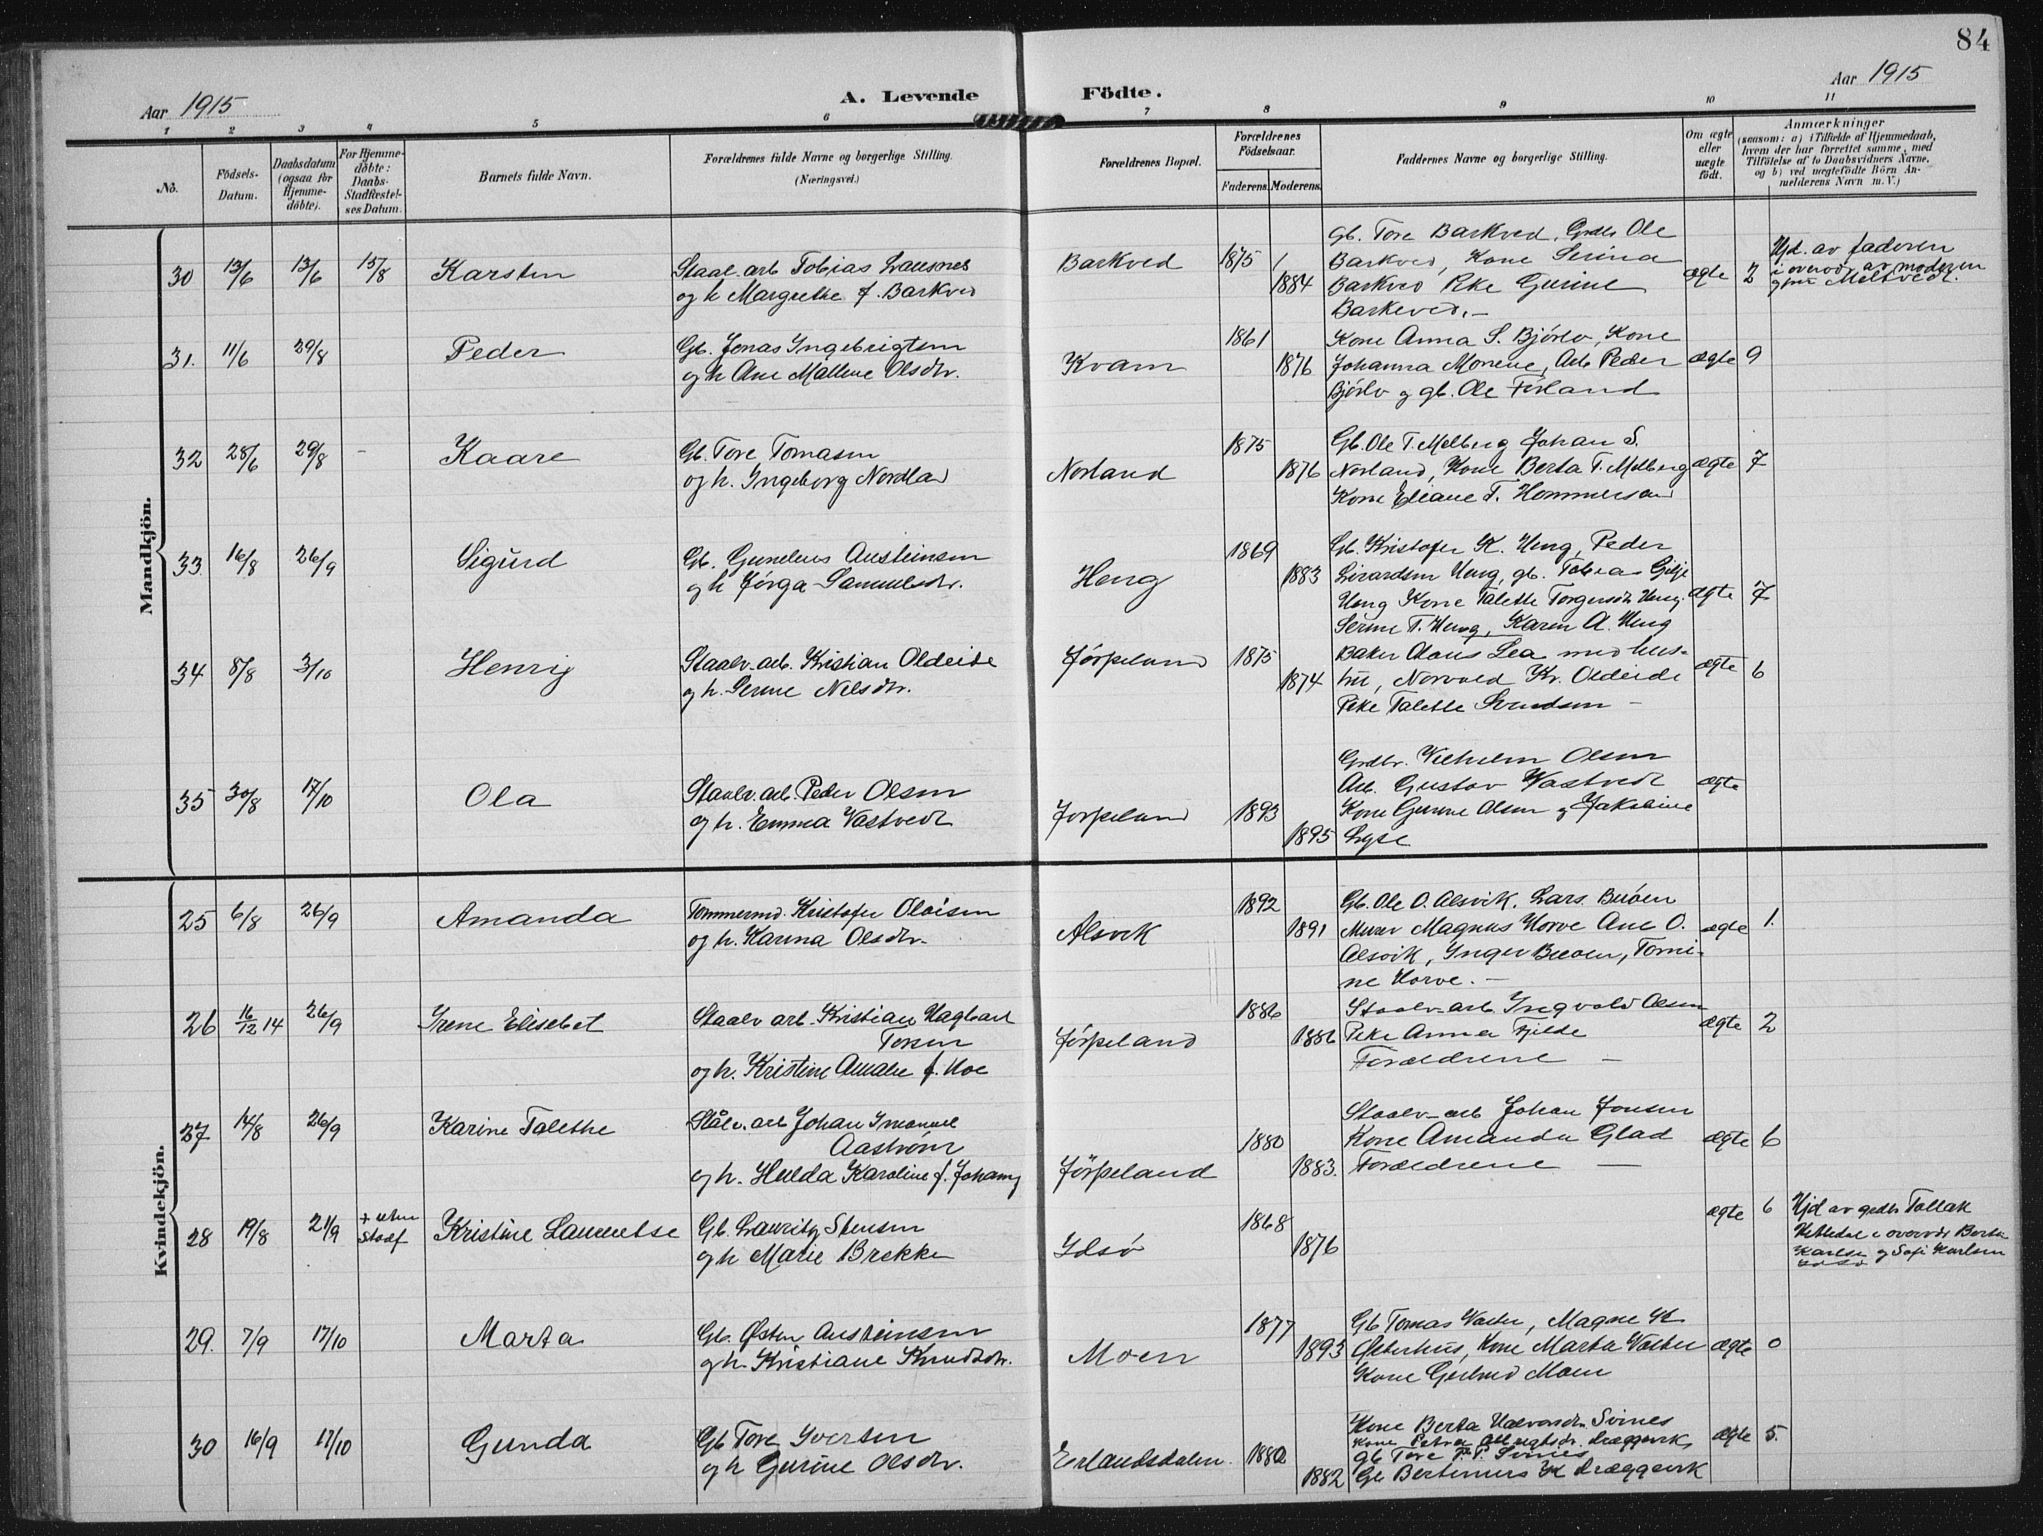 84
Aar 1915
A. Levende Födte.
Aar 1915
1 2 3 4 5 6 7 8 9 10 11
No.
Födsels-
Datum.
Daabsdatum
(ogsaa for
Hjemme-
döbte).
For Hjemme-
döbte:
Daabs-
Stadfæstel-
ses Datum.
Barnets fulde Navn.
Forældrenes fulde Navne og borgerlige Stilling.
(Næringsvei.)
Forældrenes Bopæl.
Forældrenes
Födselsaar.
Faderens. Moderens.
Faddernes Navne og borgerlige Stilling.
Om ægte
eller
uægte
födt.
Anmærkninger
(saasom: a) i Tilfælde af Hjemmedaab,
hvem der har forrettet samme, med
Tilföielse af to Daabsvidners Navne,
og b) ved uægtefödte Börn An-
melderens Navn m. V.)
Mandkjön.
30 13/6 13/6 15/8 Karsten
Staal. arb Tobias
og h Margrethe f. Barkved
Barkved
1875
1884
Gb. Tore Barkved, Ole
Barkved, Kone Serina
Barkved Pike Gurine
Barkeved.-
ægte 2
Hjd. av faderen
i overv. av moderen
31. 11/6 29/8 Peder
Gb. Jonas Ingebrigtsen
og h Ane Mallene Olsdtr.
Kvam
1861
1876
Kone Anna S. Bjørlo, Kone
Johanna Monene, Arb Peder
Bjørlo og gb. Ole Førland
ægte 9
32 28/6 29/8 - Kaare
Gb. Tore Tomasen
og h. Ingeborg Nordla
Norland
1875
1876
Gb. Ole T. Melberg Johan S.
Norland, Kone Berta T. Melberg
Kone Eliane T. Hommersan
ægte 7
33. 16/8 26/9 Sigurd
Gb. Gunelius Austeinsen
og h Jørga Samuelsdtr.
Heng
1869
1883
Gb. Kristofer K. Heng, Peder
Heng, gb. Tobias Gilje
Heng Kone Talette Torgersdtr Heng.
Serine T. Heng, Karen A. Heng
ægte 7
34 8/8 3/10 Henrig
Staalv. arb. Kristian Oldeide
og h. Serine Nelsdtr.
Jørpeland
1875
1874
Baker Claus Lea med hus-
tru, Norvald Kr. Oldeide
Pike Talette Svendsen -
ægte 6
35 30/8 17/10 Ola
Staalv. arb. Peder Olsen
og h. Emma Vastvedt
Jorpeland
1893
1895
Grdbr. Vilhelm Olsen
Arb. Gustav Vastvedt
Kone Gurine Olsen og Jakobine
Lyse
ægte
Kvindekjön.
25 6/8 26/9 Amanda
Tømmermd. Kristofer Olaisen
og h. Karina Olsdtr.
Alsvik
1892
1891
Gb. Ole O. Alsvik. Lars Buøen
Murer Magnus Horve Ane O.
Alsvik, Inger Buøen, Tomi-
ne Horve. -
ægte 1.
26 16/12 14 26/9 Irene Elisebet
Staalv arb. Kristian Hagbart
Torsen
og h. Kristine Amalie f. Moe
Jørpeland
1886
1886
Staalv-arb Ingvald Olsen
Pike Anna Fjelde
Forældrene -
ægte 2
27 14/8 26/9 Karine Talethe
Stålv. arb Johan Imanuel
Aastrøm
og h. Hulda Karoline f. Johans
Jørpeland
1880
1883.
Staalv-arb Johan Jonsen
Kone Amanda Glad
Forældrene -
ægte 6
28 19/8 21/9 + uten
Stadf Kristine Laurentse
Gb. Lauritz Stensen
og h Marie Brekke
Idsø
1868
1876
ægte 6
Hjd av gdbr Tollak
i overv. Berta
Karlsen og Sofi Karlsen
Idsø
29. 7/9 17/10 Marta
Gb. Østen Austeinsen
og h. Kristiane Knudsdtr.
Moen
1877
1893
Gb Tomas Vatter, Magne K
Østerhus, Kone Marta Vatter
Kone Gerhard Moen
ægte 0
30 16/9 17/10 Gunda
Gb Tore Ivertsen
og h Gurine Olsdtr.
Erlandsdalen
1880
1882
Kone Berta Halvorsdtr Svines
Kone Petra Albregtsdtr. Dræggevik
Gb Tore P. T. Svines
Gb Bertinius K Dræggevik
ægte 5.